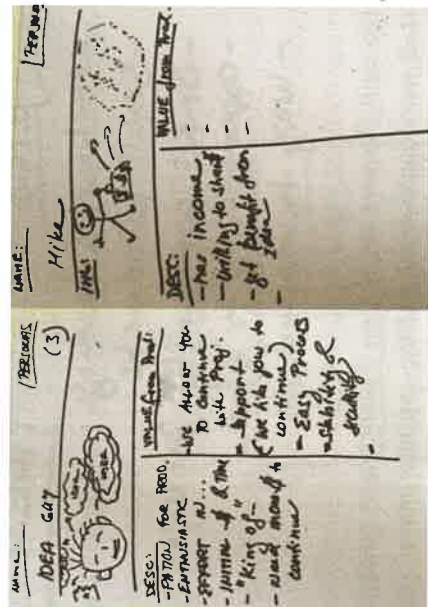 NAME:
PERSONAS
(3)
IDEA GUY
IDEA
DESC:
- FOR PROD.
- ENTHUSIASTIC
- EFFORT IN ...
- & TIME
- "King of -"
- Need money to
continue
VALUE from Prod:
- We ALLOW YOU
TO continue
with Proj.
- Support
(We like you to
continue)
- Easy Process
- Stability &
NAME:
PERSONAS
Mike
IMG:
DESC:
- has income
- willing to
- get benefit from
Idea
-
VALUE from Prod.
-
-
-
-